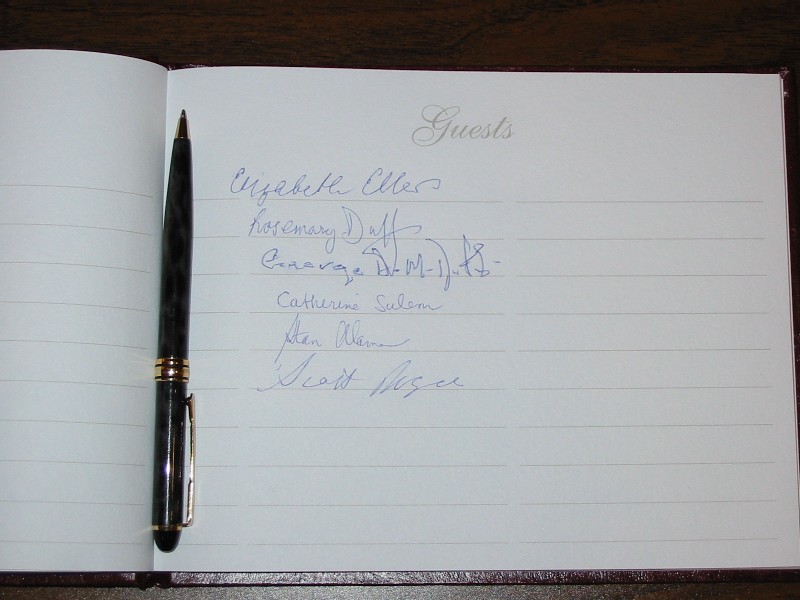 Guests
Elizabeth Ellers
Rosemary Duff
George D. M. Duff
Catherine Sulem
Stan Alama
Scott